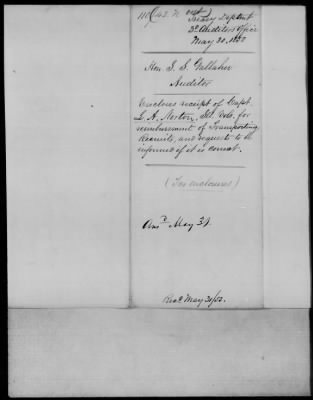 Treasy Dept
3d Auditors Office
May 20, 1852
Hon. J. S. Gallaher
Auditor
Encloses receipt of Capt.
L. A. Norton, Ill. Vols. for
reimbursement of Transporting
Recruits, and requests to be
informed if it is correct.
(Two enclosures)
Ansd May 21.
Recd May 20/52.